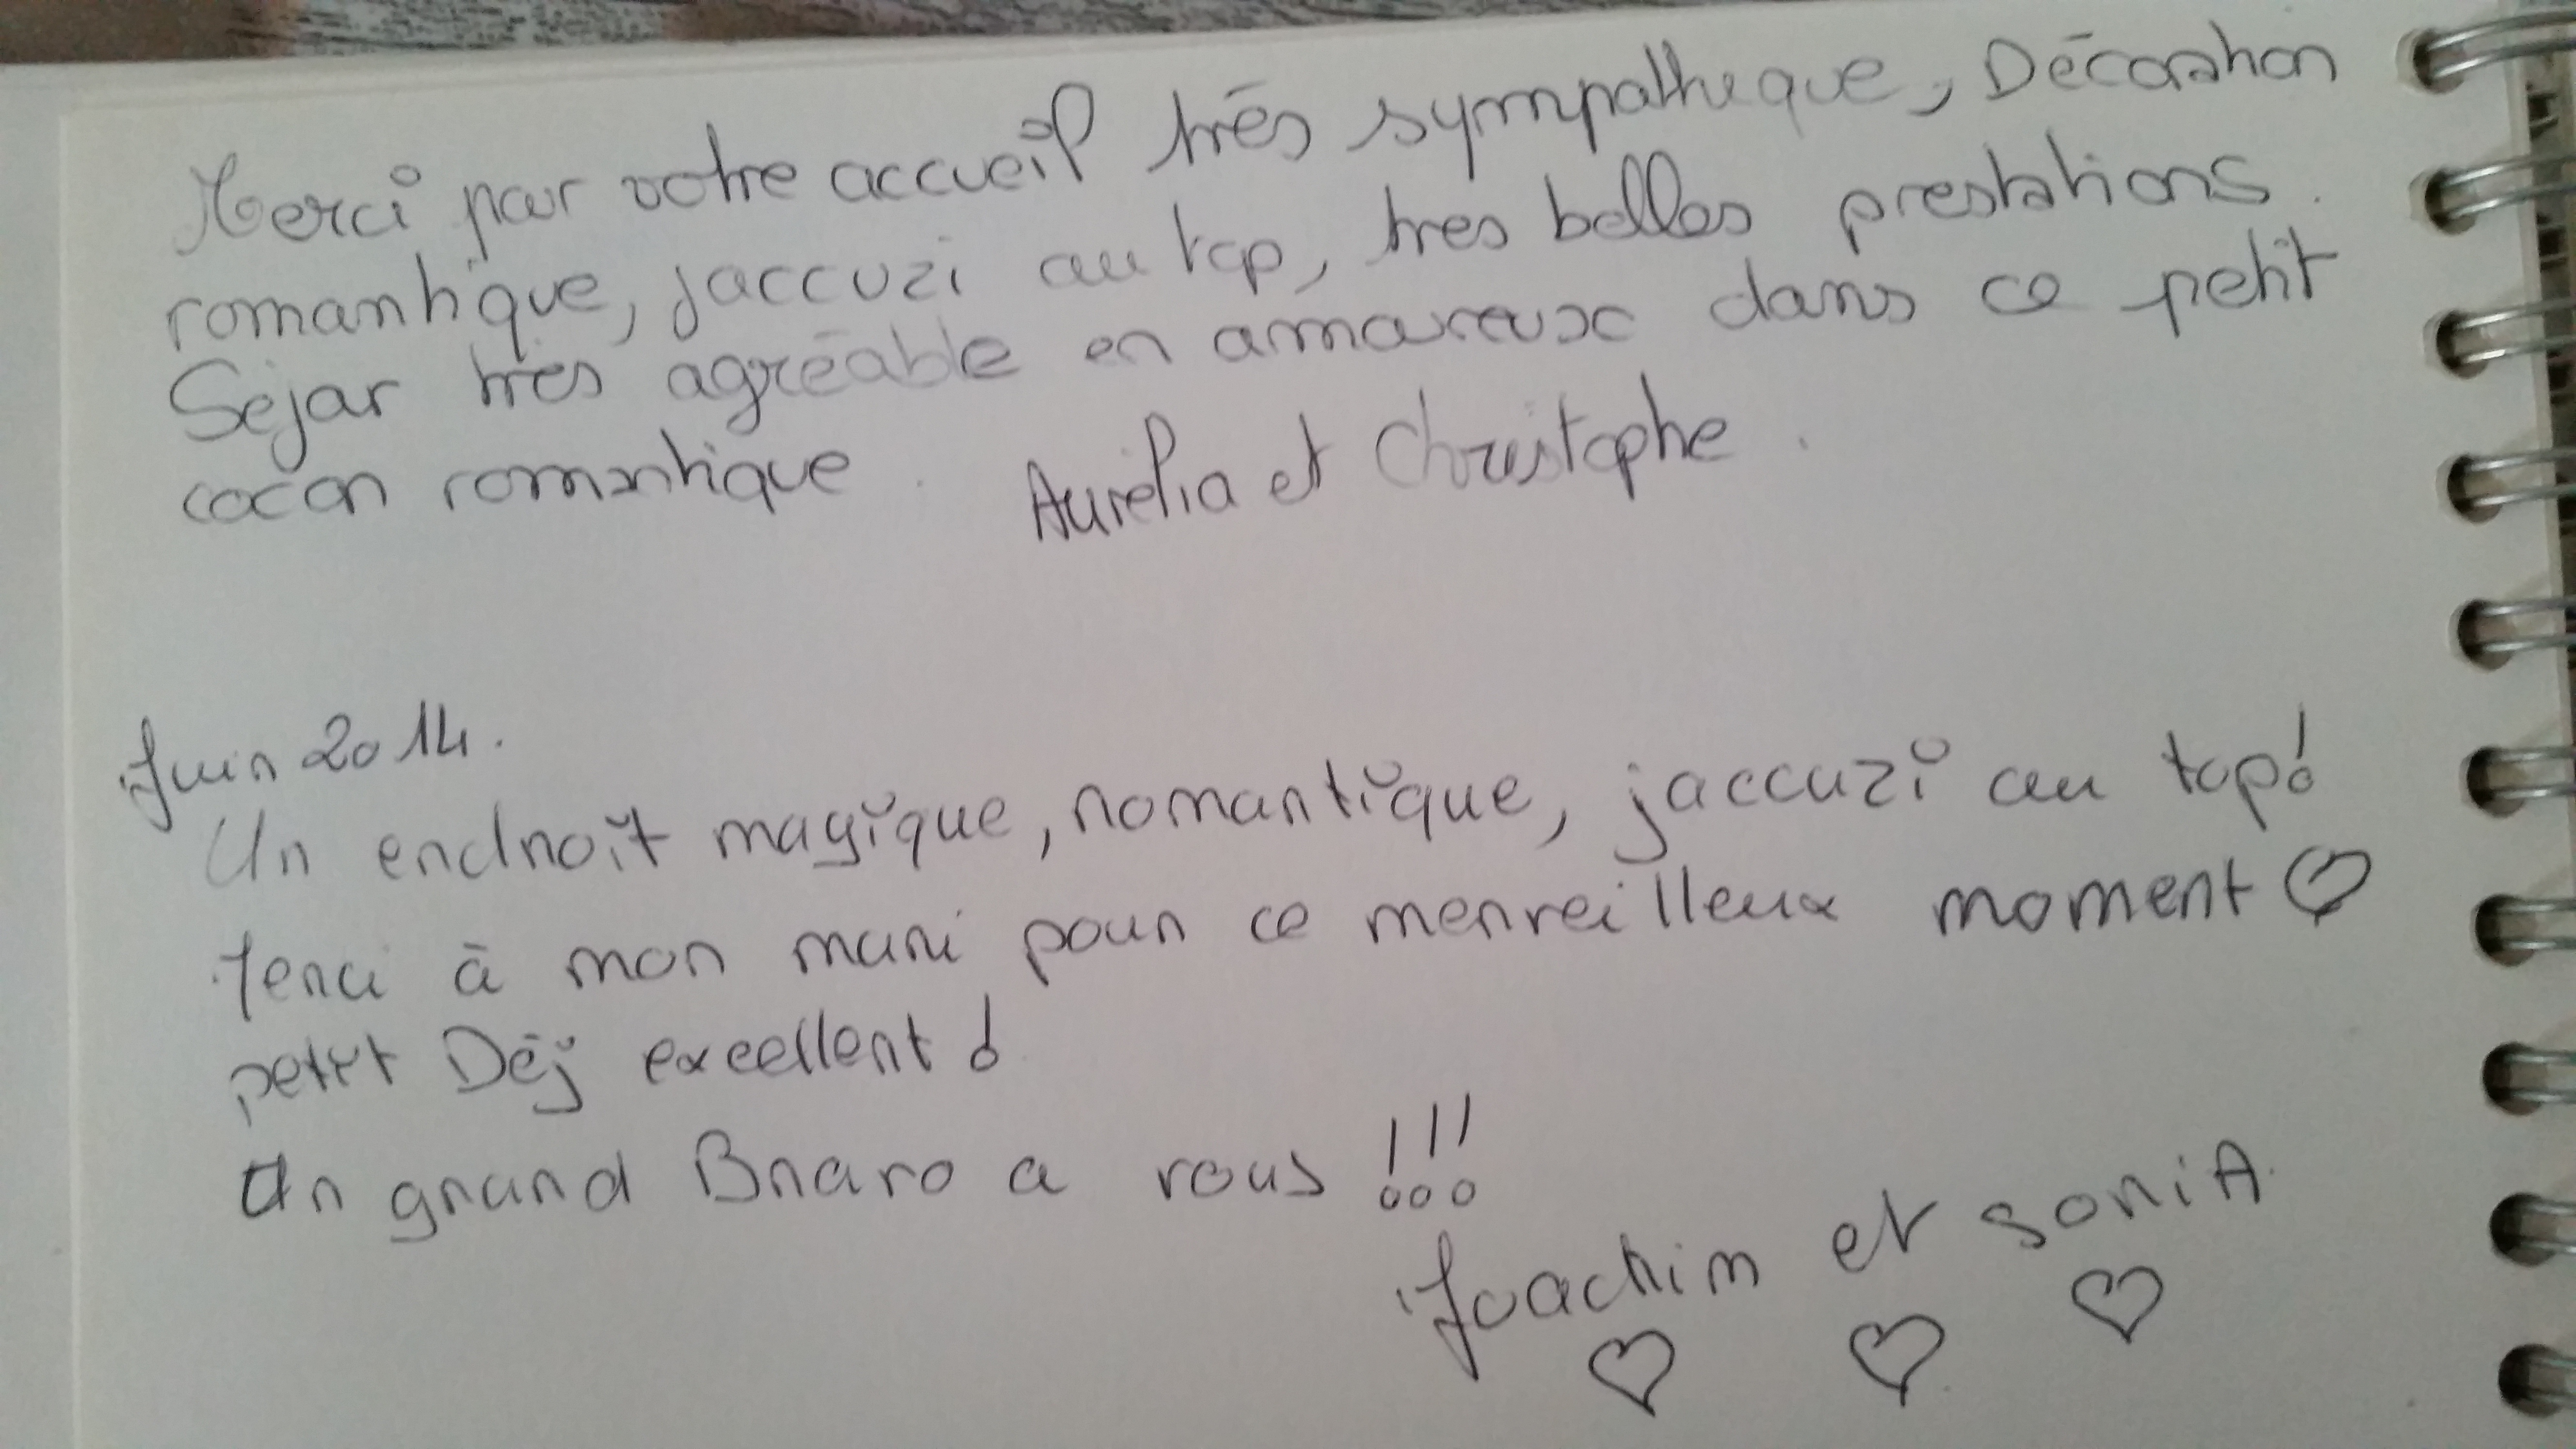 Merci pour votre accueil très sympathique, Décoration
romantique, jaccuzi au top, très belles prestations.
Séjour très agréable en amoureux dans ce petit
cocon romantique. Aurélia et Christophe.
Juin 2014.
Un endroit magique, romantique, jaccuzi au top!
Merci à mon mari pour ce merveilleux moment ♡
petit Déj excellent!
Un grand Bravo a vous!!!
Joachim et soniA.
♡ ♡ ♡